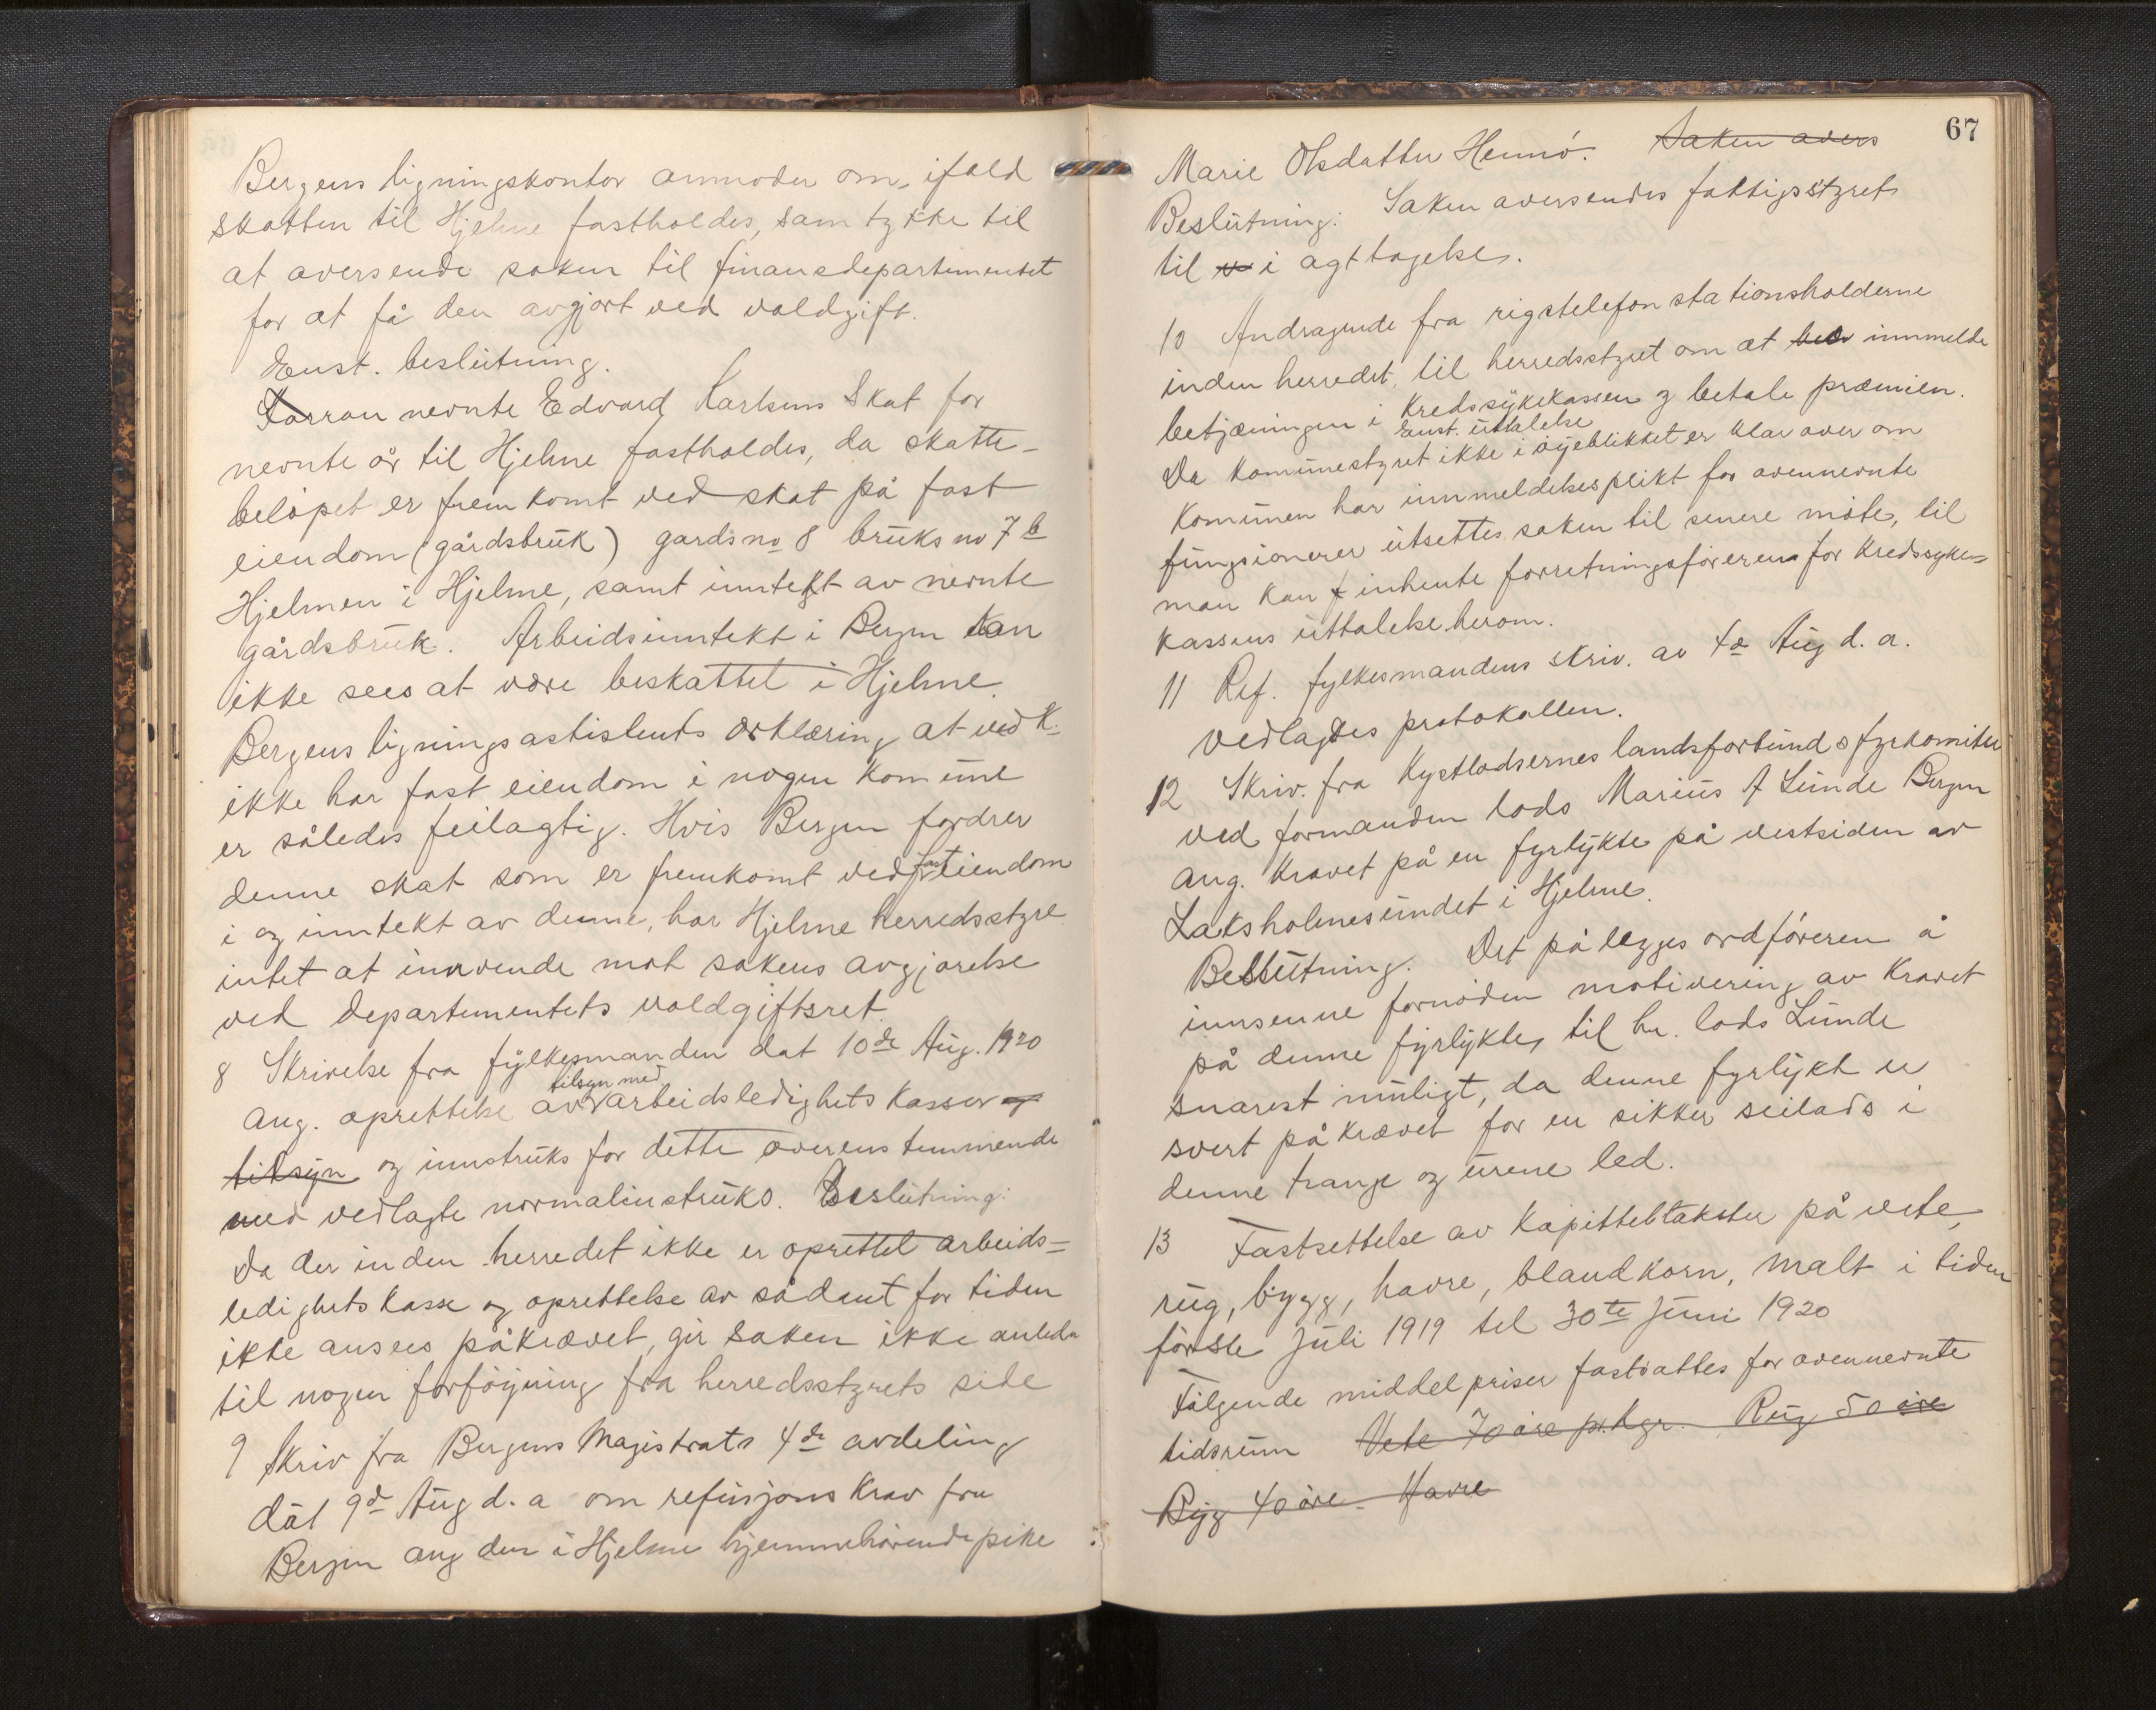 Bergens ligningskontor anmoder om, ifald
skatten til Hjelme fastholdes, samtykke til
at aversende saken til finansdepartementet
for at få den avgjort ved voldgift.
Enst. beslutning.
Forran nevnte Edvard Karlsens Skat for
nevnte år til Hjelme fastholdes, da skatte-
beløpet er fremkomt ved skat på fast
eiendom (gårdsbruk) gardsno 8 bruksno 7 b
Hjelmen i Hjelme, samt inntekt av nevnte
gårdsbruk. Arbeidsinntekt i Bergen kan
ikke sees at være beskattet i Hjelme.
Bergens ligningsastistents erklæring at ved K.
ikke har fast eiendom i nogen Komune
er således feilagtig. Hvis Bergen fordrer
denne skat som er fremkomt ved fast eiendom
i og inntekt av denne, har Hjelme herredsstyre
intet at innvende mot sakens avgjørelse
ved Departementets voldgiftsret
8 Skrivelse fra fylkesmanden dat 10de Aug. 1920
tilsyn med
ang. oprettelse av arbeidsledighets Kasser og
tilsyn og innstruks for dette overenstemmende
med vedlagte normalinstruks. Beslutning:
Da der inden herredet ikke er oprettet arbeids=
ledighetskasse og oprettelse av sådant for tiden
ikke ansees påkrævet, gir saken ikke anledn
til nogen forføyning fra herredsstyrets side
9 Skriv fra Bergens Magistrats 4de avdeling
dat 9d Aug d. a om refusjons Krav fra
Bergen ang den i Hjelme hjemmehørende pike
67
Marie Olsdatter Hennø. Saken avers
Beslutning: Saken aversendes fattigsstyret
til i agttagelse.
10 Andragende fra rigstelefon stationsholderne
inden herredet, til herredsstyret om at innmelde
betjæningen i Kredssykekassen og betale præmien.
Enst. uttalelse
Da Komunestyret ikke i øyeblikket er klar over om
Komunen har innmeldelsesplikt for ovennevnte
fungsionerer utsettes saken til senere møte, til
man kan inhente forretningsføreren for Kredssyke=
kassens uttalelse herom.
11 Ref. fylkesmandens skriv. av 4de Aug d. a.
vedlagdes protokollen.
12 Skriv. fra Kystlodsernes landsforbunds fyrkomitee
ved formanden lods Marius A Lunde Bergen
ang. Kravet på en fyrlykte på vestsiden av
Laksholmesundet i Hjelme.
Beslutning. Det pålegges ordføreren å
innsenne fornøden motivering av Kravet
på denne fyrlykte, til hr. lods Lunde
snarest muligt, da denne fyrlykt er
svert påkrævet for en sikker seilads i
denne trange og urene led.
13 Fastsettelse av Kapittelstakster på vete,
rug, bygg, havre, blandkorn, malt i tiden
første Juli 1919 til 30te Juni 1920
Følgende middelpriser fastsattes for ovennevnte
tidsrum Vete 70 øre pr. kgr. Rug 50 øre
Byg 40 øre. Havre